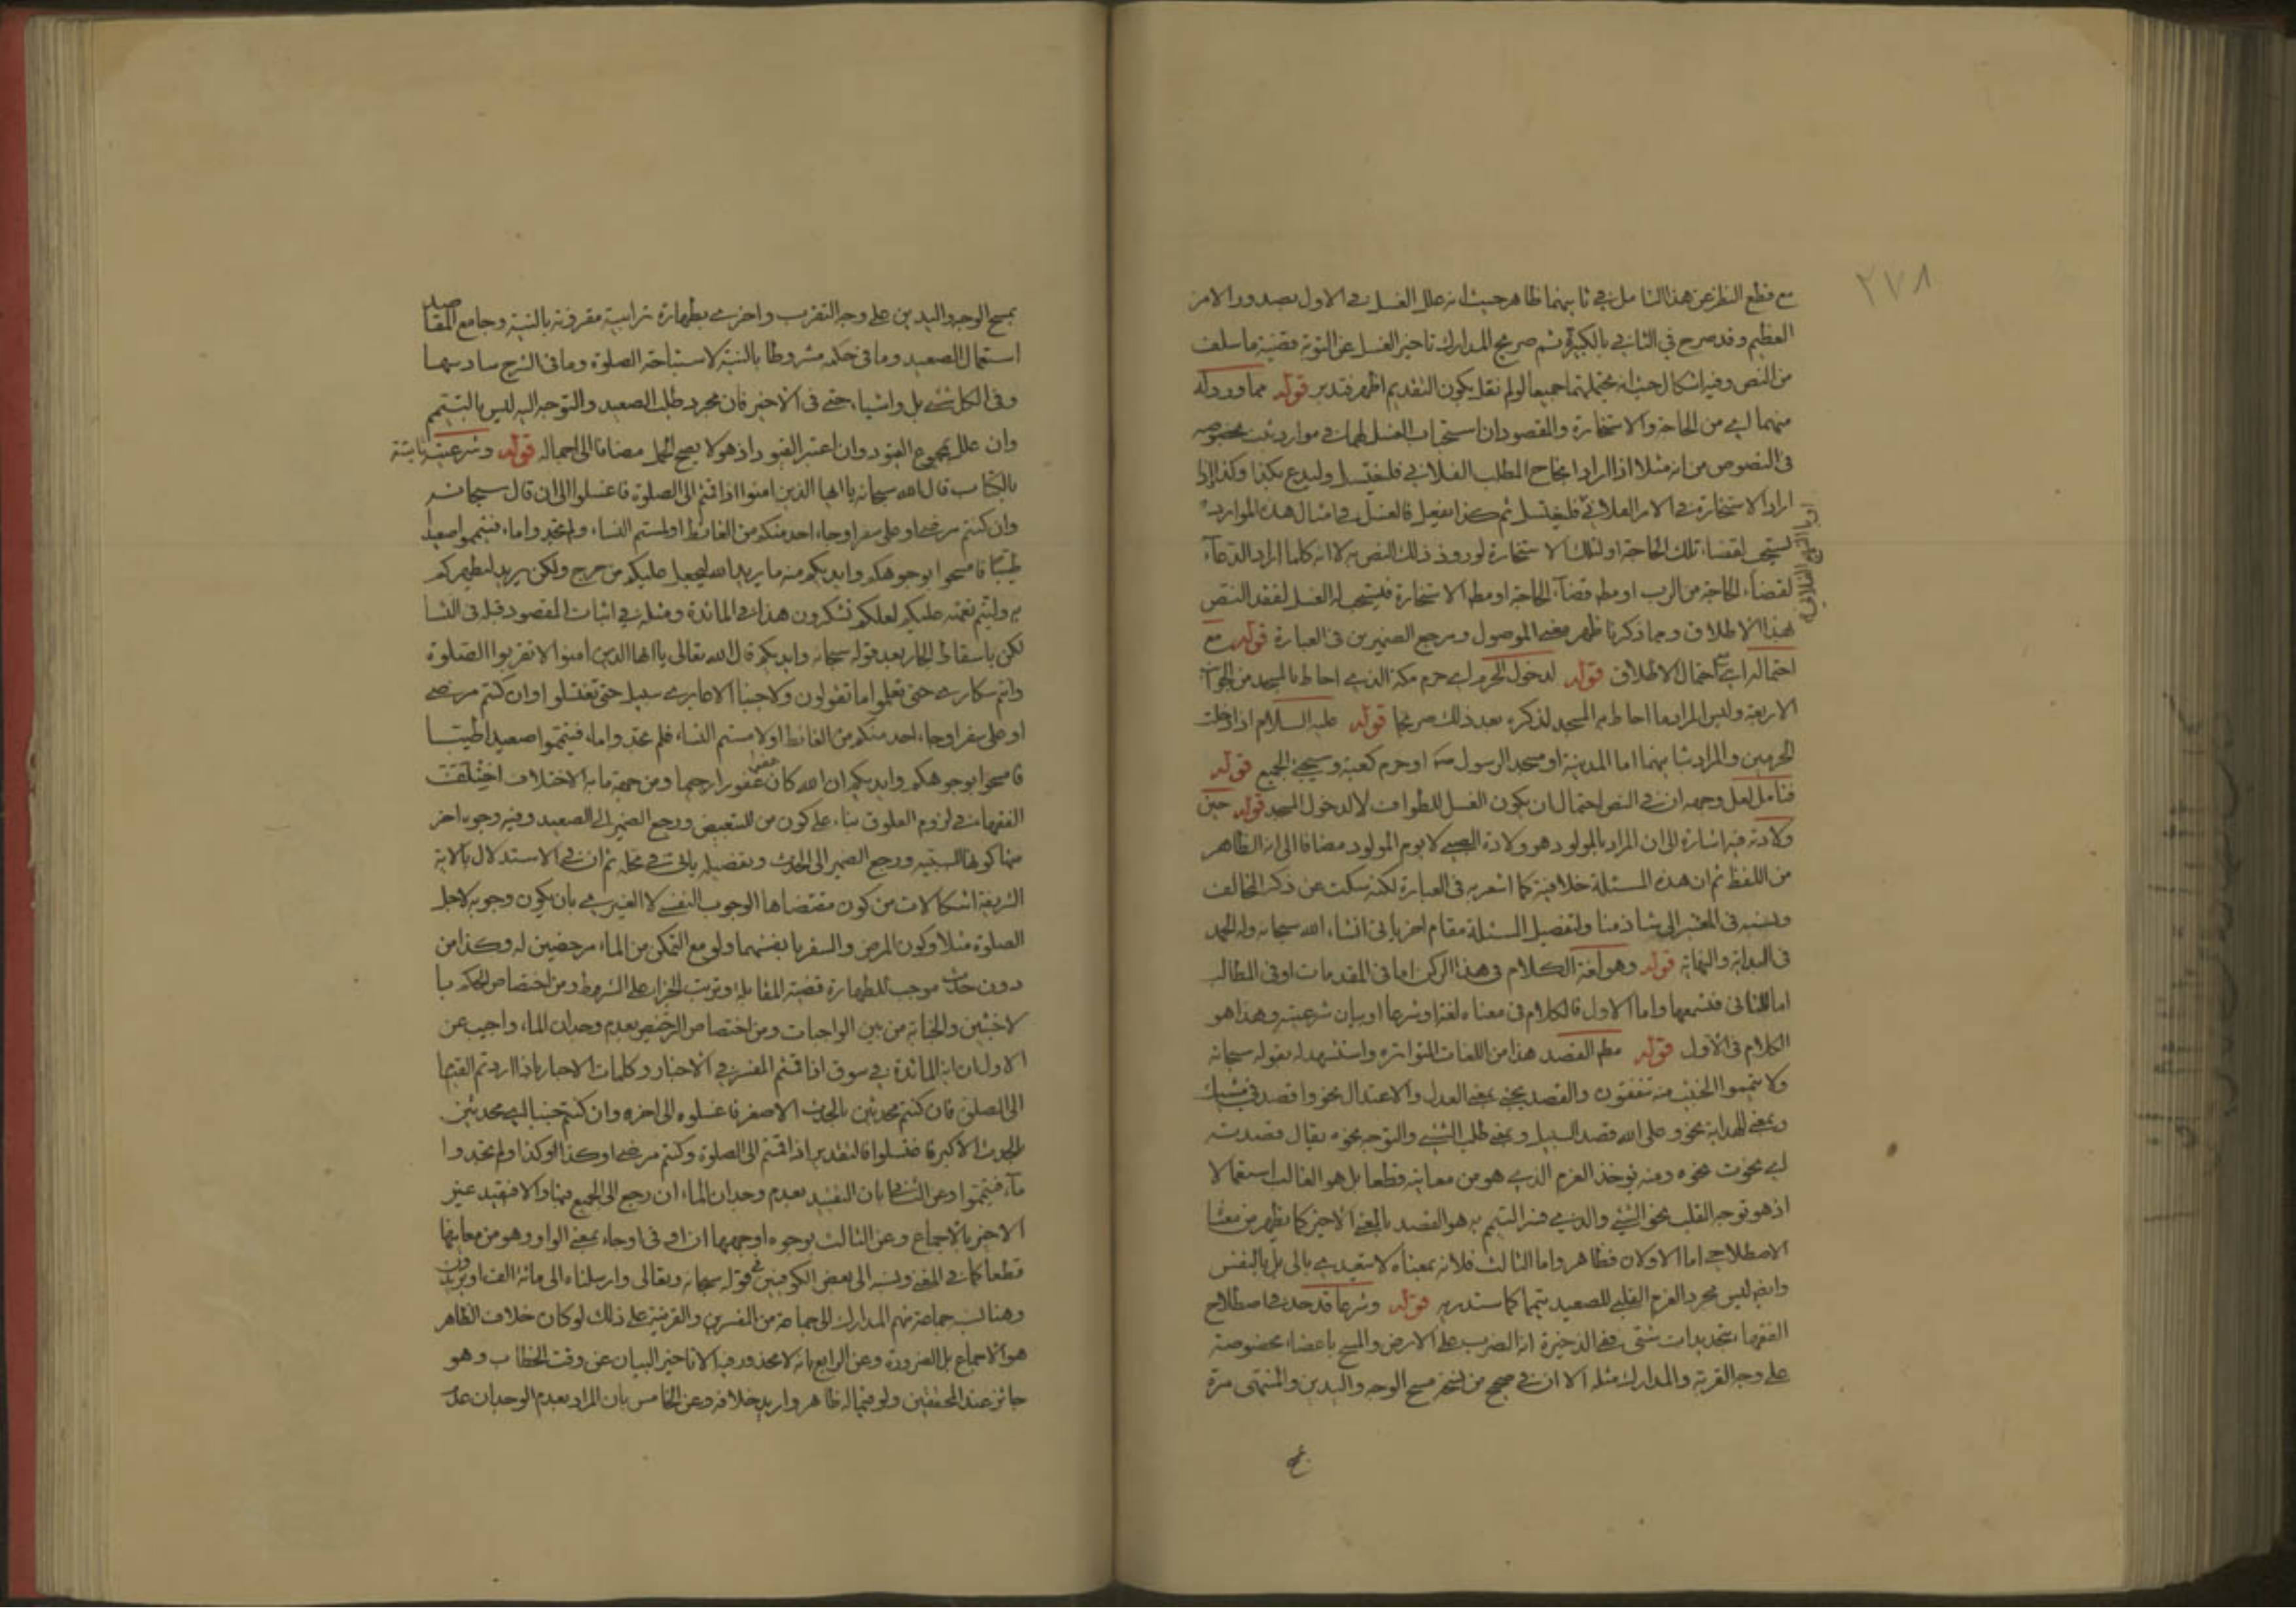 ٢٧٨
مع قطع النظر عن هذا التامل في ثانيهما ظاهر حيث انه علل الغسل في الاول بصدور الامر
العظيم وقد صرح في الثاني بالكبيرة ثم صريح المدارك تاخير الغسل عن التوبة قضية ما سلف
من النص وفيه اشكال حيث انه جميعا لو لم نقل بكون التقديم اظهر فتدبر قوله مما ورد له
منهما اي من الحاجة والاستخارة والمقصود ان استحباب الغسل لهما في موارد مخصوصه
في النصوص من انه مثلا اذا اراد انجاح المطلب الفلاني فليغتسل وليدع بكذا وكذا اذا
اراد الاستخارة في الامر الفلاني فليغتسل ثم كذا يفعل فالغسل في امثال هذه الموارد
يستحب لقضاء تلك الحاجة او لتلك الاستخارة لورود ذلك النص به لا انه كلما اراد الدعاء
لقضاء الحاجة من الرب او مطه قضاء الحاجة او مطه الاستخارة فليستحب له الغسل لفقد النص
بهذا الاطلاق وبما ذكرنا ظهر معنى الموصول ومرجع الضميرين في العبارة قوله مع
احتماله اي احتمال الاطلاق قوله لدخول الحرم اي حرم مكة الذي احاط بالمسجد من الجوانب
الاربعة وليس المراد بما احاط به المسجد لذكره بعد ذلك صريحا قوله عليه السلام اذا دخلت
الحرمين والمراد بثانيهما اما المدينة او مسجد الرسول ص او حرم كعبة وسيجئ الجميع قوله
فتامل لعل وجهه ان في النص احتمال ان يكون الغسل للطواف لا لدخول المسجد قوله حين
ولادته فيه اشارة الى ان المراد بالمولود هو ولادة الصبي لا يوم المولود مضافا الى انه الظاهر
من اللفظ ثم ان هذه المسئلة خلافية كما اشعر به في العبارة لكنه سكت عن ذكر المخالف
ونسبه في المعتبر الى شاذ منا ولتفصيل المسئلة مقام اخر ياتي انشاء الله سبحانه وله الحمد
في البداية والنهاية قوله وهو لغة الكلام في هذا الركن اما في المقدمات او في المطالب
اما الثاني فستسمعها واما الاول فالكلام في معناه لغة وشرعا او بيان شرعيته وهذا هو
الكلام في الاول قوله مطه القصد هذا من اللغات المتواترة واستشهد له بقوله سبحانه
ولا تيمموا الخبيث منه تنفقون والقصد يجئ بمعنى العدل والاعتدال نحو واقصد في مشيك
وبمعنى الهداية نحو وعلى الله قصد السبيل وبمعنى طلب الشئ والتوجه نحوه يقال قصدته
اي نحوت نحوه ومنه يوخذ العزم الذي هو من معانيه قطعا بل هو الغالب استعمالا
اذ هو توجه القلب نحو الشئ والذي فسر التيمم به هو القصد بالمعنى الاخير كما يظهر من معناه
الاصطلاحي اما الاولان فظاهر واما الثالث فلانه بمعناه لا يتعدى بالى بل بالنفس
وايضا ليس مجرد العزم القلبي للصعيد تيمما كما ستدريه قوله وشرعا قد حد في اصطلاح
الفقهاء بتحديدات شتى ففي الذخيرة انه الضرب على الارض والمسح باعضاء مخصوصة
على وجه القربة والمدارك مثله الا ان في صحيح من نسخه مسح الوجه واليدين والمنتهى مرة
ان الامر الفلاني
بمسح الوجه واليدين على وجه التقرب واخرى بطهارة ترابية مقرونة بالنية وجامع المقاصد
استعمال الصعيد وما في حكمه مشروطا بالنية لاستباحة الصلوة وما في الشرح سادسها
وفي الكل شئ بل واشياء حتى في الاخير فان مجرد طلب الصعيد والتوجه اليه ليس بالتيمم
وان علل بمجموع القيود وان اعتبر القيود اذ هو لا يصح الحمل مضافا الى اجماله قوله وشرعيته ثابتة
بالكتاب قال الله سبحانه يا ايها الذين امنوا اذا قمتم الى الصلوة فاغسلوا الى ان قال سبحانه
وان كنتم مرضى او على سفر او جاء احد منكم من الغائط او لمستم النساء ولم تجدوا ماء فتيمموا صعيدا
طيبا فامسحوا بوجوهكم وايديكم منه ما يريد الله ليجعل عليكم من حرج ولكن يريد ليطهركم
به وليتم نعمته عليكم لعلكم تشكرون هذا في المائدة ومثله في اثبات المقصود قبله في النساء
لكن باسقاط الجار بعد قوله سبحانه وايديكم قال الله تعالى يا ايها الذين امنوا لا تقربوا الصلوة
وانتم سكارى حتى تعلموا ما تقولون ولا جنبا الا عابري سبيل حتى تغتسلوا وان كنتم مرضى
او على سفر او جاء احد منكم من الغائط او لامستم النساء فلم تجدوا ماء فتيمموا صعيدا طيبا
فامسحوا بوجوهكم وايديكم ان الله كان عفوا غفورا رحيما ومن جهة ما به الاختلاف اختلفت
الفقهاء في لزوم العلوق بناء على كون من للتبعيض ورجع الضمير الى الصعيد وفيه وجوه اخر
منها كونها للسببية ورجع الضمير الى الحدث وتفصيله ياتي في محله ثم ان في الاستدلال بالاية
الشريفة اشكالات من كون مقتضاها الوجوب النفسي لا الغيري بان يكون وجوبه لاجل
الصلوة مثلا وكون المرض والسفر بانفسهما ولو مع التمكن من الماء مرخصين له وكذا من
دون حدث موجب للطهارة قضية المقابلة وترتب الجزاء على الشرط ومن اختصاص الحكم با
لاخبثين والجنابة من بين الواجبات ومن اختصاص الترخيص بعدم وجدان الماء واجيب عن
الاول بان اية المائدة في سوق اذا قمتم المفسر في الاخبار وكلمات الاحبار باذا اردتم القيام
الى الصلوة فان كنتم محدثين بالحدث الاصغر فاغسلوا الى اخره وان كنتم جنبا اي محدثين
بالحدث الاكبر فاغتسلوا فالتقدير اذا قمتم الى الصلوة وكنتم مرضى او كذا او كذا ولم تجدوا
ماء فتيمموا وعن الثاني بان التقييد بعدم وجدان الماء ان رجع الى الجميع فبها والا فبقيد غير
الاخير بالاجماع وعن الثالث بوجوه اوجهها ان او في او جاء بمعنى الواو وهو من معانيها
قطعا كما في المغني ونسبه الى بعض الكوفيين قوله سبحانه وتعالى وارسلناه الى مائة الف او يزيدون
وهنا نسبه جماعة منهم المدارك الى جماعة من المفسرين والقرينة على ذلك لو كان خلاف الظاهر
هو الاجماع بل الضرورة وعن الرابع بانه لا محذور فيه الا تاخير البيان عن وقت الخطاب وهو
جائز عند المحققين ولو فيما له ظاهر واريد خلافه وعن الخامس بان المراد بعدم الوجدان عدم